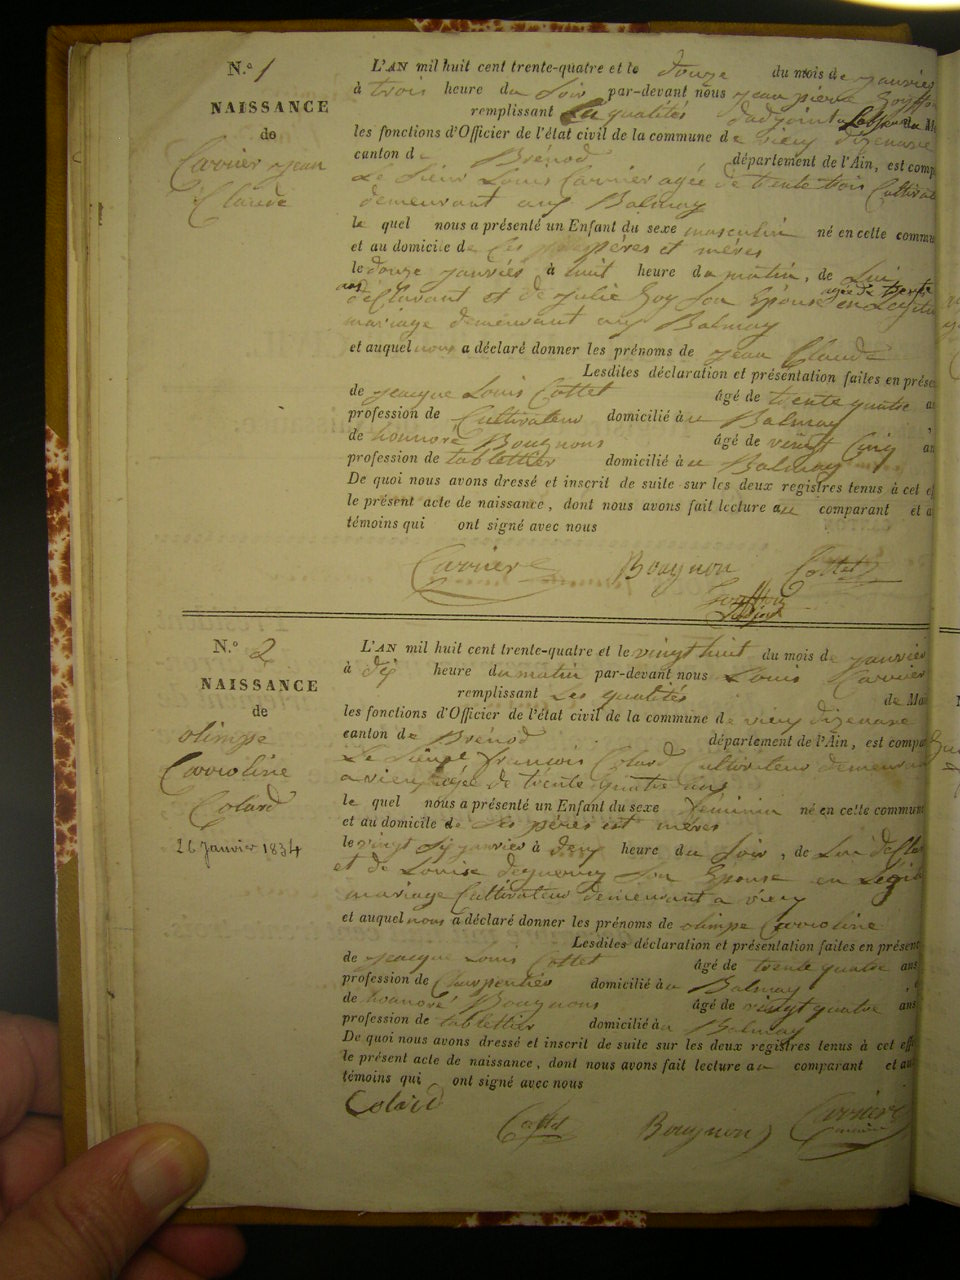 N.º 1
NAISSANCE
de
Carrier Jean
Claude
L'AN mil huit cent trente-quatre et le douze du mois de janvier
à trois heure du soir par-devant nous jean pierre
remplissant les qualités d'adjoint
les fonctions d'Officier de l'état civil de la commune de vieu dizenave
canton de Brénod département de l'Ain, est comp
Le sieur Louis Carrier agée de trente trois Cultivat
demeurant au Balmay
le quel nous a présenté un Enfant du sexe masculin né en cette commu
et au domicile de pères et mères
le douze janvier à huit heure du matin, de Lui
déclarant et de julie Goy son Epouse agée de trente ans en Legitu
mariage demeurant au Balmay
et auquel nous a déclaré donner les prénoms de jean Claude
Lesdites déclaration et présentation faites en prése
de jacque Louis Cottet âgé de trente quatre an
profession de Cultivateur domicilié au Balmay ,
de honnoré Bougnons âgé de vingt Cinq an
profession de tablettier domicilié au Balmay
De quoi nous avons dressé et inscrit de suite sur les deux registres tenus à cet ef
le présent acte de naissance, dont nous avons fait lecture au comparant et a
témoins qui ont signé avec nous
Carrier Bougnon Cottet
N.º 2
NAISSANCE
de
olimpe
Carroline
Colard
26 Janvier 1834
L'AN mil huit cent trente-quatre et le vingt huit du mois de janvier
à dix heure du matin par-devant nous Louis Carrier
remplissant Les qualités de Mai
les fonctions d'Officier de l'état civil de la commune de vieu dizenave
canton de Brénod département de l'Ain, est compa
Le sieur françois Colard Cultivateur demeurant
a vieu agée de trente quatre ans
le quel nous a présenté un Enfant du sexe féminin né en cette commune
et au domicile de Ses pères est mères
le vingt six janvier à deux heure du soir, de Lui déclar
et de Louise son Epouse en Légit
mariage Cultivateur demeurant a vieu
et auquel nous a déclaré donner les prénoms de olimpe Carroline
Lesdites déclaration et présentation faites en présenc
de jacque Louis Cottet âgé de trente quatre ans
profession de Charpentier domicilié au Balmay ,
de honnoré Bougnons âgé de vingt quatre ans
profession de tablettier domicilié au Balmay
De quoi nous avons dressé et inscrit de suite sur les deux registres tenus à cet effe
le présent acte de naissance, dont nous avons fait lecture au comparant et au
témoins qui ont signé avec nous
Colard
Cottet Bougnon Carrier